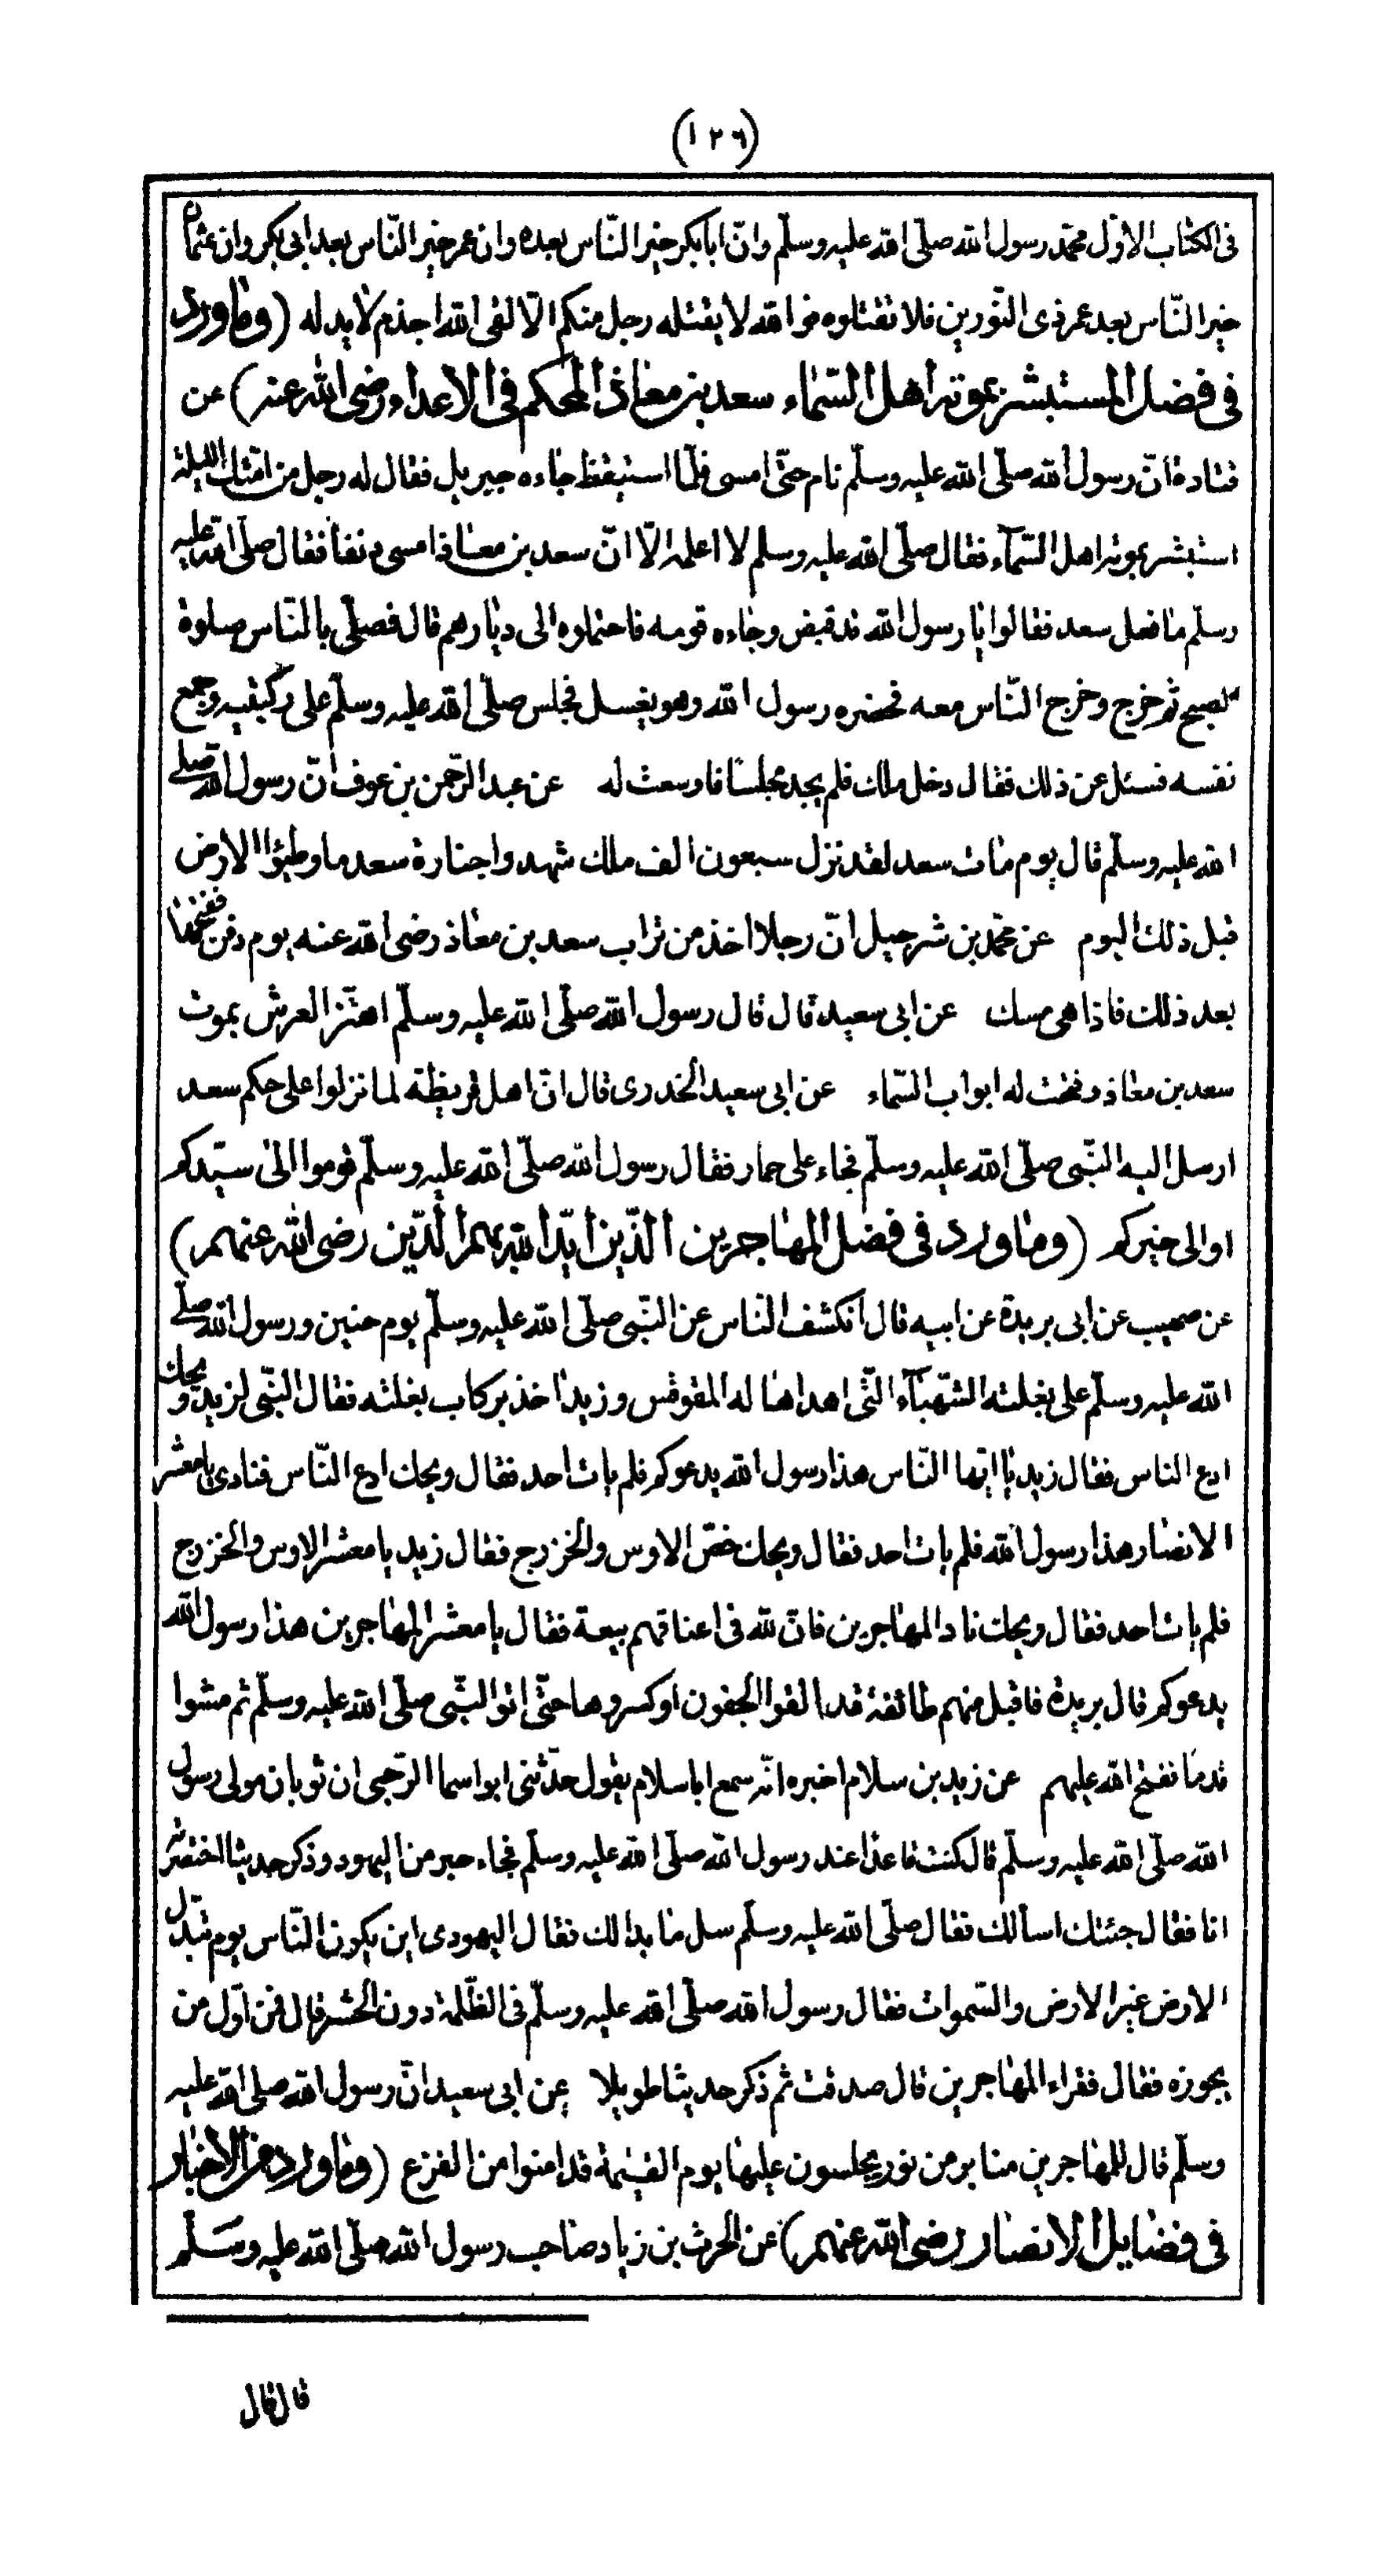 (١٢٦)
فى الكتاب الاوّل محمّد رسول الله صلّى الله عليه وسلّم وانّ ابابكر خير النّاس بعده وان عمر خير النّاس بعد ابى بكر وان عثمان
خير النّاس بعد عمر ذى النّورين فلا تقتلوه فوالله لا يقتله رجل منكم الّا لقى الله اجذم لا يد له (وما ورد
فى فضل المستبشر بموته اهل السّماء سعد بن معاذ المحكم فى الاعداء رضى الله عنه) عن
قتادة انّ رسول الله صلّى الله عليه وسلّم نام حتّى امسى فلمّا استيقظ جاءه جبريل فقال له رجل من امّتك الليلة
استبشر بموته اهل السّمآء فقال صلّى الله عليه وسلم لا اعلمه الّا انّ سعد بن معاذ امسى دنفاً فقال صلّى الله عليه
وسلّم ما فعل سعد فقالوا يا رسول الله قد قبض وجاءه قومه فاحتملوه الى ديارهم قال فصلّى بالنّاس صلوة
الصبح ثم خرج وخرج النّاس معه فحضره رسول الله وهو يغسل فجلس صلّى الله عليه وسلّم على ركبتيه وجمع
نفسه فسئل عن ذلك فقال دخل ملك فلم يجد مجلسًا فاوسعت له عن عبد الرّحمن بن عوف انّ رسول الله صلى
الله عليه وسلّم قال يوم مات سعد لقد نزل سبعون الف ملك شهدوا جنازة سعد ما وطئوا الارض
قبل ذلك اليوم عن محمّد بن شرحبيل انّ رجلا اخذ من تراب سعد بن معاذ رضى الله عنه يوم دفن ففتحها
بعد ذلك فاذا هى مسك عن ابى سعيد قال قال رسول الله صلّى الله عليه وسلّم اهتزّ العرش بموت
سعد بن معاذ وفتحت له ابواب السّماء عن ابى سعيد الخدرى قال انّ اهل قريظة لما نزلوا على حكم سعد
ارسل اليه النّبى صلّى الله عليه وسلّم فجاء على حمار فقال رسول الله صلّى الله عليه وسلّم قوموا الى سيّدكم
او الى خيركم (وما ورد فى فضل المهاجرين الذّين ايّد الله بهم الدّين رضى الله عنهم)
عن صهيب عن ابى بريدة عن ابيه قال انكشف النّاس عن النّبى صلّى الله عليه وسلّم يوم حنين ورسول الله صلى
الله عليه وسلّم على بغلته الشّهبآء الّتى اهداها له المقوقس وزيد اخذ بركاب بغلته فقال النّبى لزيد ويحك
ادع الناس فقال زيد يا ايّها النّاس هذا رسول الله يدعوكم فلم يات احد فقال ويحك ادع النّاس فنادى يا معشر
الانصار هذا رسول الله فلم يات احد فقال ويحك خصّ الاوس والخزرج فقال زيد يا معشر الاوس والخزرج
فلم يات احد فقال ويحك ناد المهاجرين فانّ لله فى اعناقهم بيعة فقال يا معشر المهاجرين هذا رسول الله
يدعوكم قال بريدة فاقبل منهم طائفة قد القوا الجفون او كسروها حتّى اتوا النّبى صلّى الله عليه وسلّم ثم مشوا
قدما ففتح الله عليهم عن زيد بن سلام اخبره انّه سمع اباسلام يقول حدّثنى ابو اسما الرّحبى ان ثوبان مولى رسول
الله صلّى الله عليه وسلّم قال كنت قاعدًا عند رسول الله صلّى الله عليه وسلّم فجاء حبر من اليهود وذكر حديثا اختصرته
انا فقال جئتك اسألك فقال صلّى الله عليه وسلّم سل ما بدا لك فقال اليهودى اين يكون النّاس يوم تبدّل
الارض غير الارض والسّموات فقال رسول الله صلّى الله عليه وسلّم فى الظّلمة دون الحشر قال فمن اوّل من
يجوزه فقال فقراء المهاجرين قال صدقت ثم ذكر حديثا طويلا عن ابى سعيد انّ رسول الله صلى الله عليه
وسلّم قال للمهاجرين منابر من نور يجلسون عليها يوم القيٰمة قد امنوا من الفزع (وما ورد من الاخبار
فى فضايل الانصار رضى الله عنهم) عن الحرث بن زياد صاحب رسول الله صلّى الله عليه وسلّم
قال قال